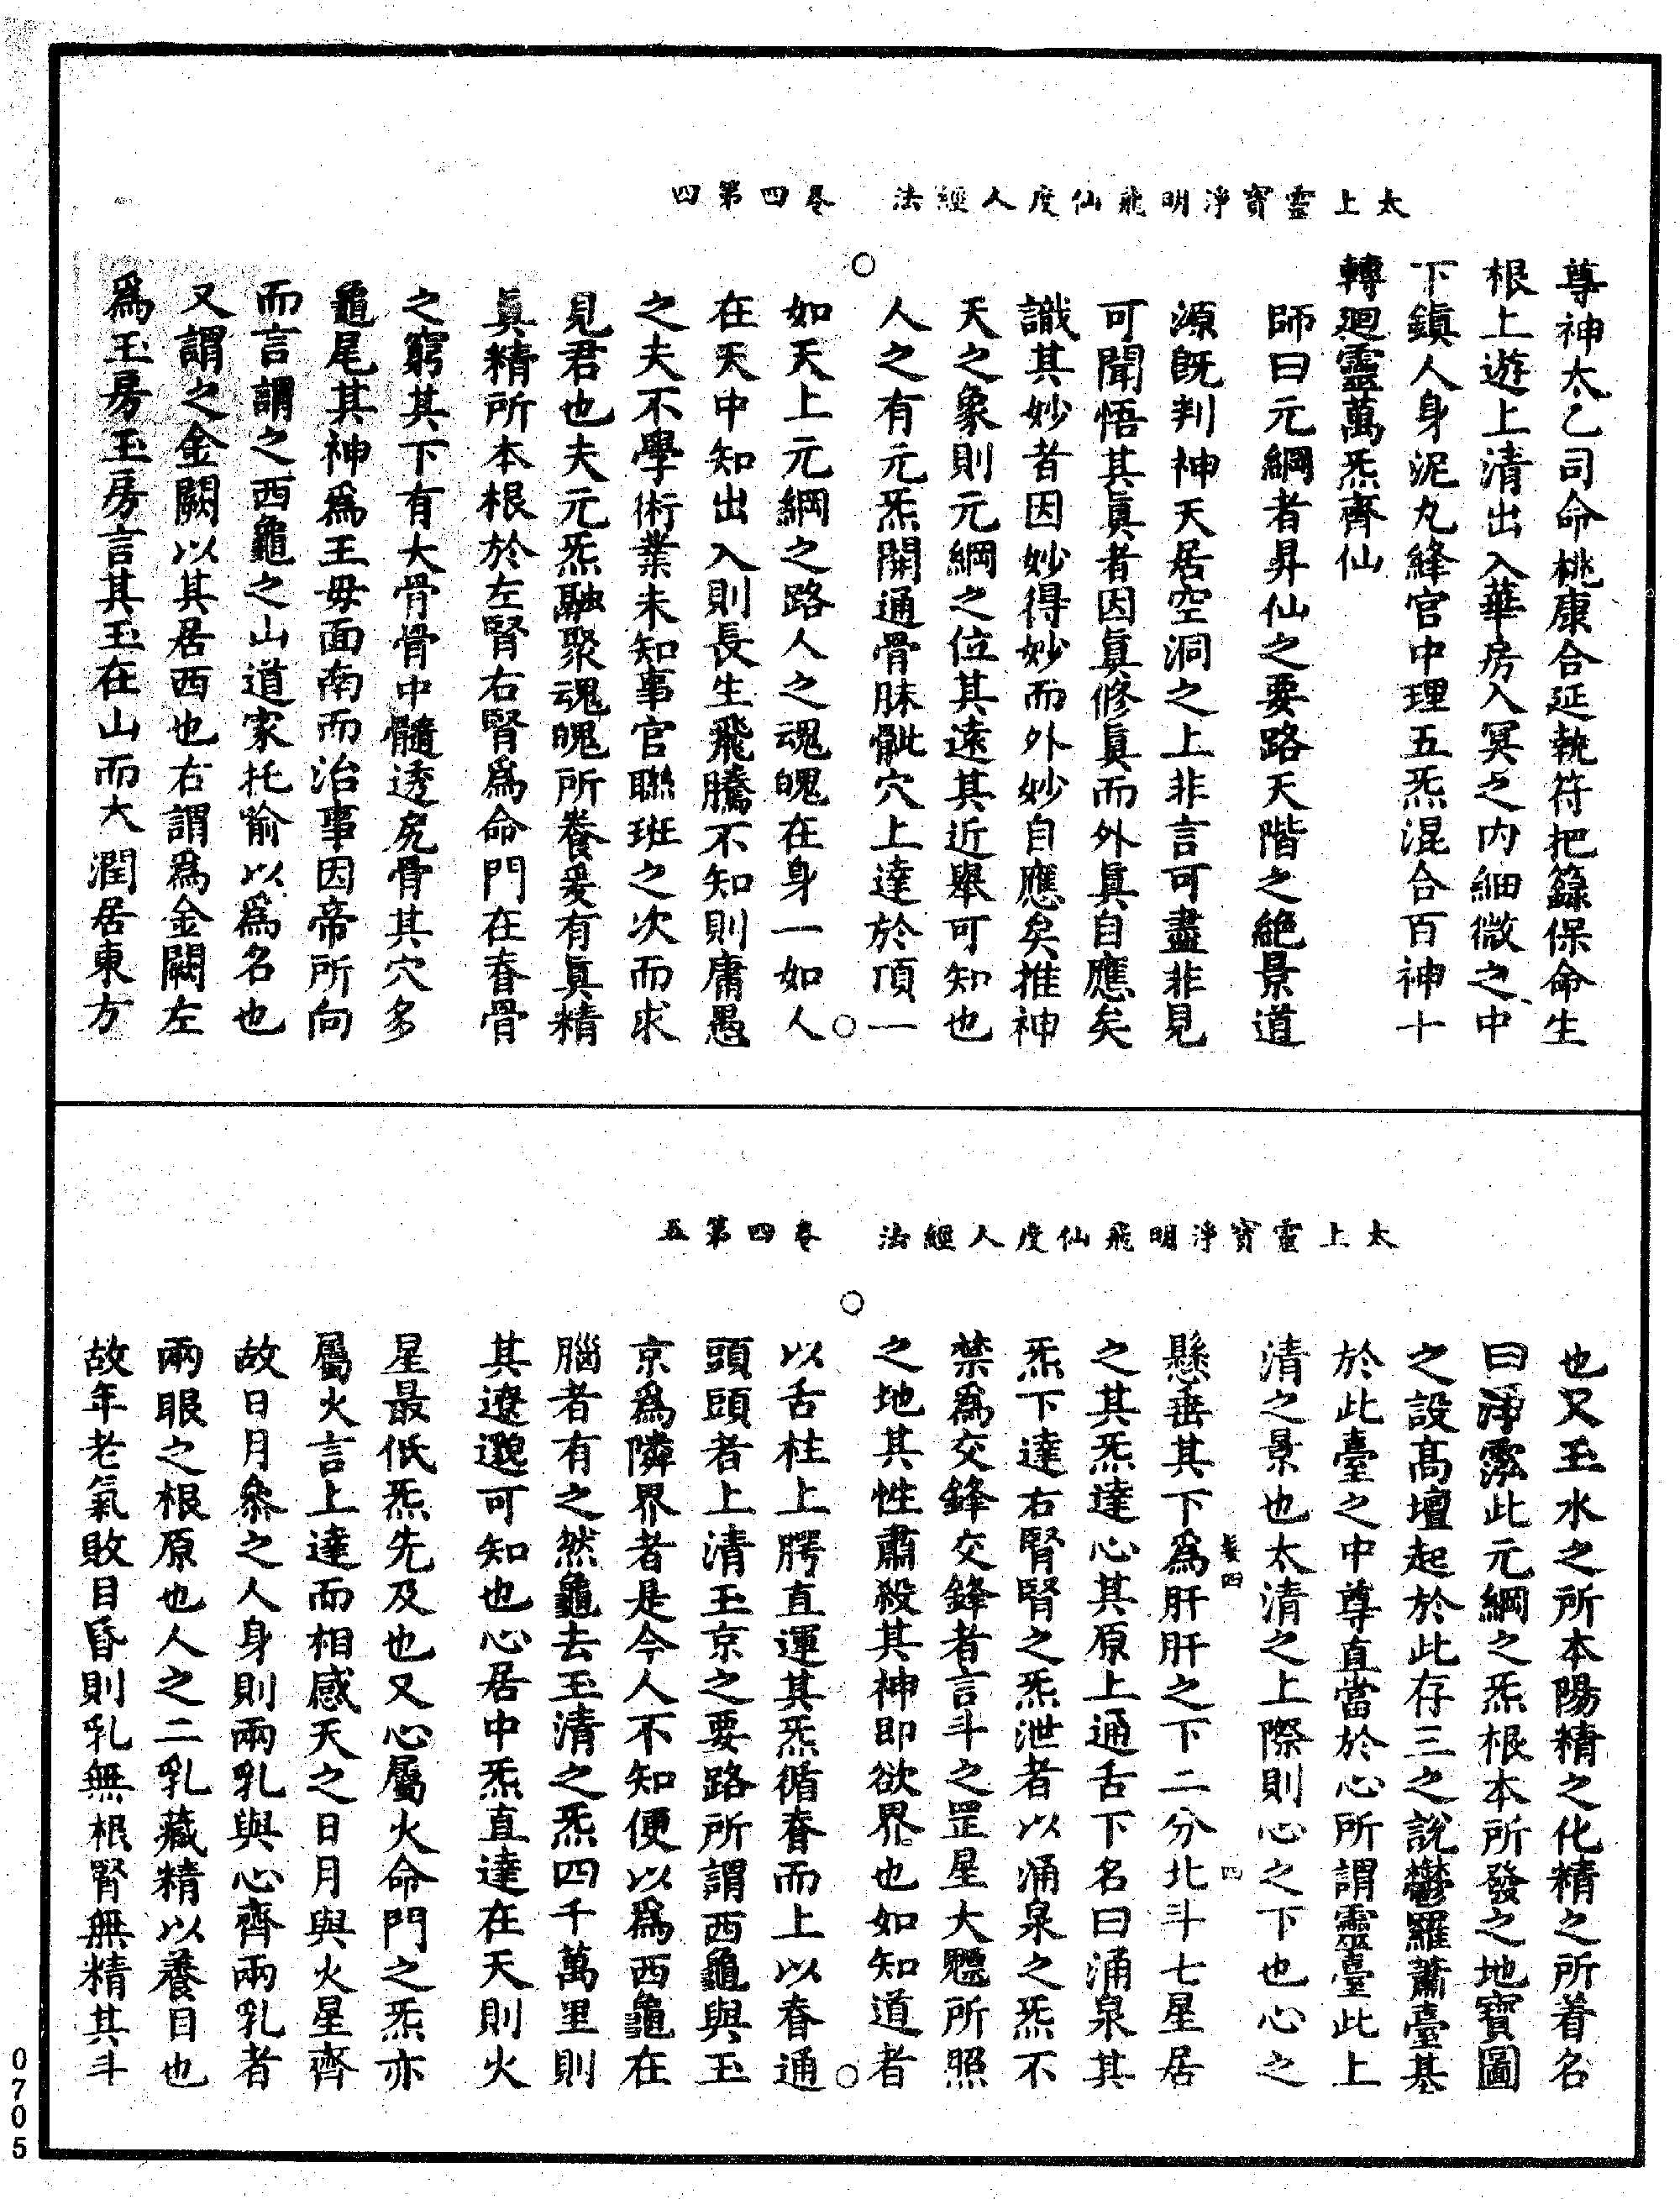 太上靈寶淨明飛仙度人經法　卷四第四
尊神太乙司命桃康合延執符把籙保命生
根上遊上清出入華房入冥之內細微之中
下鎮人身泥丸絳宮中理五炁混合百神十
轉廻靈萬炁齊仙
師曰元綱者昇仙之要路天階之絕景道
源旣判神天居空洞之上非言可盡非見
可聞悟其真者因真修真而外真自應矣
識其妙者因妙得妙而外妙自應矣推神
天之象則元綱之位其遠其近舉可知也
人之有元炁開通骨脉骴穴上達於頂一
如天上元綱之路人之魂魄在身一如人
在天中知出入則長生飛騰不知則庸愚
之夫不學術業未知事官聯班之次而求
見君也夫元炁融聚魂魄所養爰有真精
真精所本根於左腎右腎爲命門在脊骨
之窮其下有大骨骨中髓透尻骨其穴多
龜尾其神爲王母面南而治事因帝所向
而言謂之西龜之山道家托喻以爲名也
又謂之金闕以其居西也右謂爲金闕左
爲玉房玉房言其玉在山而大潤居東方
太上靈寶淨明飛仙度人經法　卷四第五
也又玉水之所本陽精之化精之所着名
曰淨灀此元綱之炁根本所發之地寶圖
之設髙壇起於此存三之說鬱羅蕭臺基
於此臺之中尊直當於心所謂靈臺此上
清之景也太清之上際則心之下也心之
髮四　四
懸垂其下爲肝肝之下二分北斗七星居
之其炁達心其原上通舌下名曰涌泉其
炁下達右腎腎之炁泄者以涌泉之炁不
禁爲交鋒交鋒者言斗之罡星大魒所照
之地其性肅殺其神即欲界也如知道者
以舌柱上腭直運其炁循脊而上以脊通
頭頭者上清玉京之要路所謂西龜與玉
京爲隣界者是今人不知便以爲西龜在
腦者有之然龜去玉清之炁四千萬里則
其遼邈可知也心居中炁直達在天則火
星最低炁先及也又心屬火命門之炁亦
屬火言上達而相感天之日月與火星齊
故日月叅之人身則兩乳與心齊兩乳者
兩眼之根原也人之二乳藏精以養目也
故年老氣敗目昏則乳無根腎無精其斗
0705